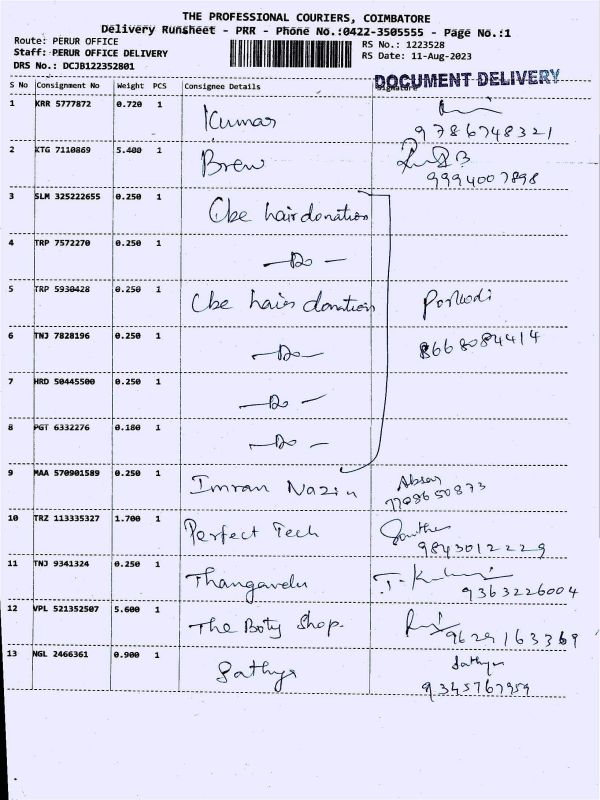 THE PROFESSIONAL COURIERS, COIMBATORE
Delivery Runsheet - PRR - Phone No.:0422-3505555 - Page No.:1
Route: PERUR OFFICE
RS No.: 1223528
Staff: PERUR OFFICE DELIVERY
RS Date: 11-Aug-2023
DRS No.: DCJB122352801
DOCUMENT DELIVERY
S No Consignment No Weight PCS Consignee Details Signature
1 KRR 5777872 0.720 1 Kumar
9786748321
2 KTG 7110869 5.400 1 Brew
9994007898
3 SLM 325222655 0.250 1 Cbe hair donation
4 TRP 7572270 0.250 1 -Do-
5 TRP 5930428 0.250 1 Cbe hair donation Porkodi
6 TNJ 7828196 0.250 1 -Do- 8668084414
7 HRD 50445500 0.250 1 -Do-
8 PGT 6332276 0.180 1 -Do-
9 MAA 570901589 0.250 1 Imran Nazin Absar
7708650873
10 TRZ 113335327 1.700 1 Perfect Tech
9843012229
11 TNJ 9341324 0.250 1 Thangavelu
9363226004
12 VPL 521352507 5.600 1 The Boty Shop.
9629163369
13 NGL 2466361 0.900 1 Sathya Sathya
9345767959